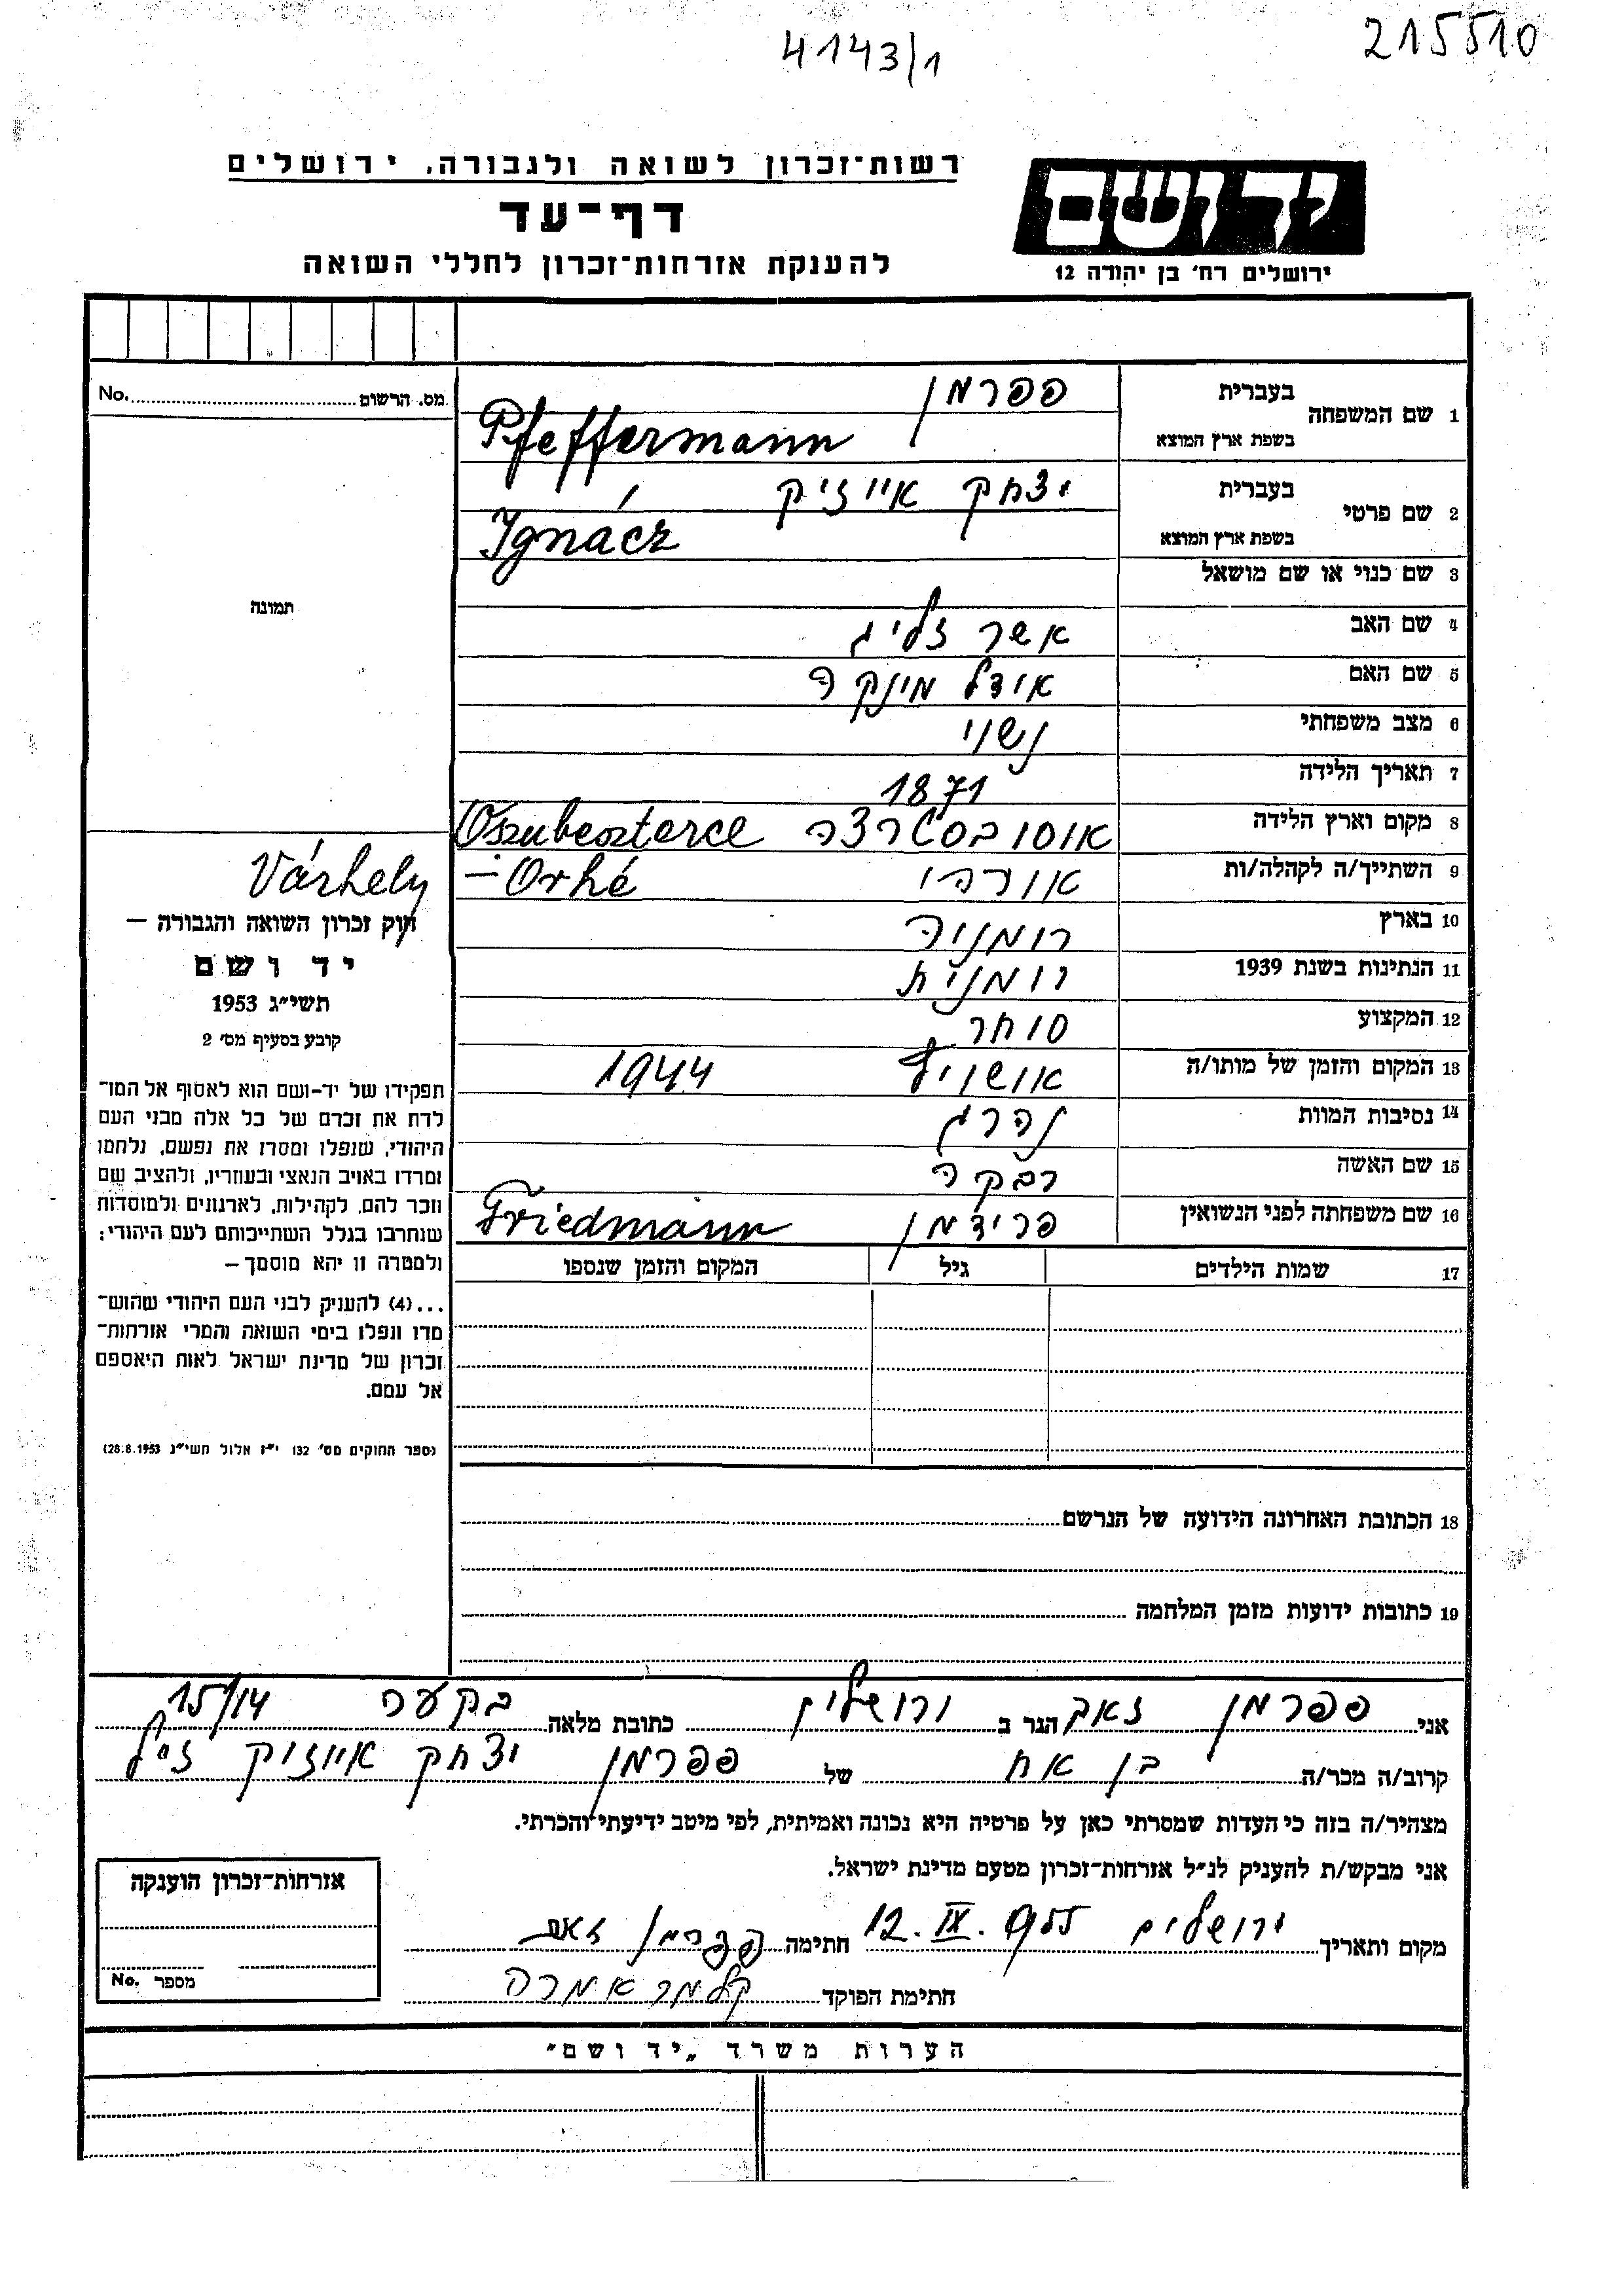 4143/1
215510
רשות־זכרון לשואה ולגבורה, ירושלים
דף־עד
להענקת אזרחות־זכרון לחללי השואה
ידושם
ירושלים רח' בן יהודה 12
מס. הרשום No.
תמונה
1 שם המשפחה בעברית פפרמן
בשפת ארץ המוצא Pfeffermann
2 שם פרטי בעברית יצחק אייזיק
בשפת ארץ המוצא Ignácz
3 שם כנוי או שם מושאל
4 שם האב אשר זליג
5 שם האם אידל מינקה
6 מצב משפחתי נשוי
7 תאריך הלידה 1871
8 מקום וארץ הלידה אוסובסטרצה Oszubeszterce
9 השתייך/ה לקהלה/ות אורהיי Orhé – Várhely
10 בארץ רומניה
11 הנתינות בשנת 1939 רומנית
12 המקצוע סוחר
13 המקום והזמן של מותו/ה אושויץ 1944
14 נסיבות המוות נהרג
15 שם האשה רבקה
16 שם משפחתה לפני הנשואין פרידמן Friedmann
17 שמות הילדים גיל המקום והזמן שנספו
18 הכתובת האחרונה הידועה של הנרשם
19 כתובות ידועות מזמן המלחמה
חוק זכרון השואה והגבורה –
יד ושם
תשי"ג 1953
קובע בסעיף מס' 2
תפקידו של יד-ושם הוא לאסוף אל המו־
לדת את זכרם של כל אלה מבני העם
היהודי, שנפלו ומסרו את נפשם, נלחמו
ומרדו באויב הנאצי ובעוזריו, ולהציב שם
וזכר להם, לקהילות, לארגונים ולמוסדות
שנחרבו בגלל השתייכותם לעם היהודי;
ולמטרה זו יהא מוסמך –
...(4) להעניק לבני העם היהודי שהוש־
מדו ונפלו בימי השואה והמרי אזרחות־
זכרון של מדינת ישראל לאות היאספם
אל עמם.
(ספר החוקים מס' 132 י"ז אלול תשי"ג 28.8.1953)
אני פפרמן זאב הגר ב ירושלים כתובת מלאה בקעה 15/14
קרוב/ה מכר/ה בן אח של פפרמן יצחק אייזיק ז"ל
מצהיר/ה בזה כי העדות שמסרתי כאן על פרטיה היא נכונה ואמיתית, לפי מיטב ידיעתי והכרתי.
אני מבקש/ת להעניק לנ"ל אזרחות־זכרון מטעם מדינת ישראל.
מקום ותאריך ירושלים 12. IX. 955 חתימה פפרמן זאב
חתימת הפוקד
אזרחות־זכרון הוענקה
מספר No.
הערות משרד „יד ושם"